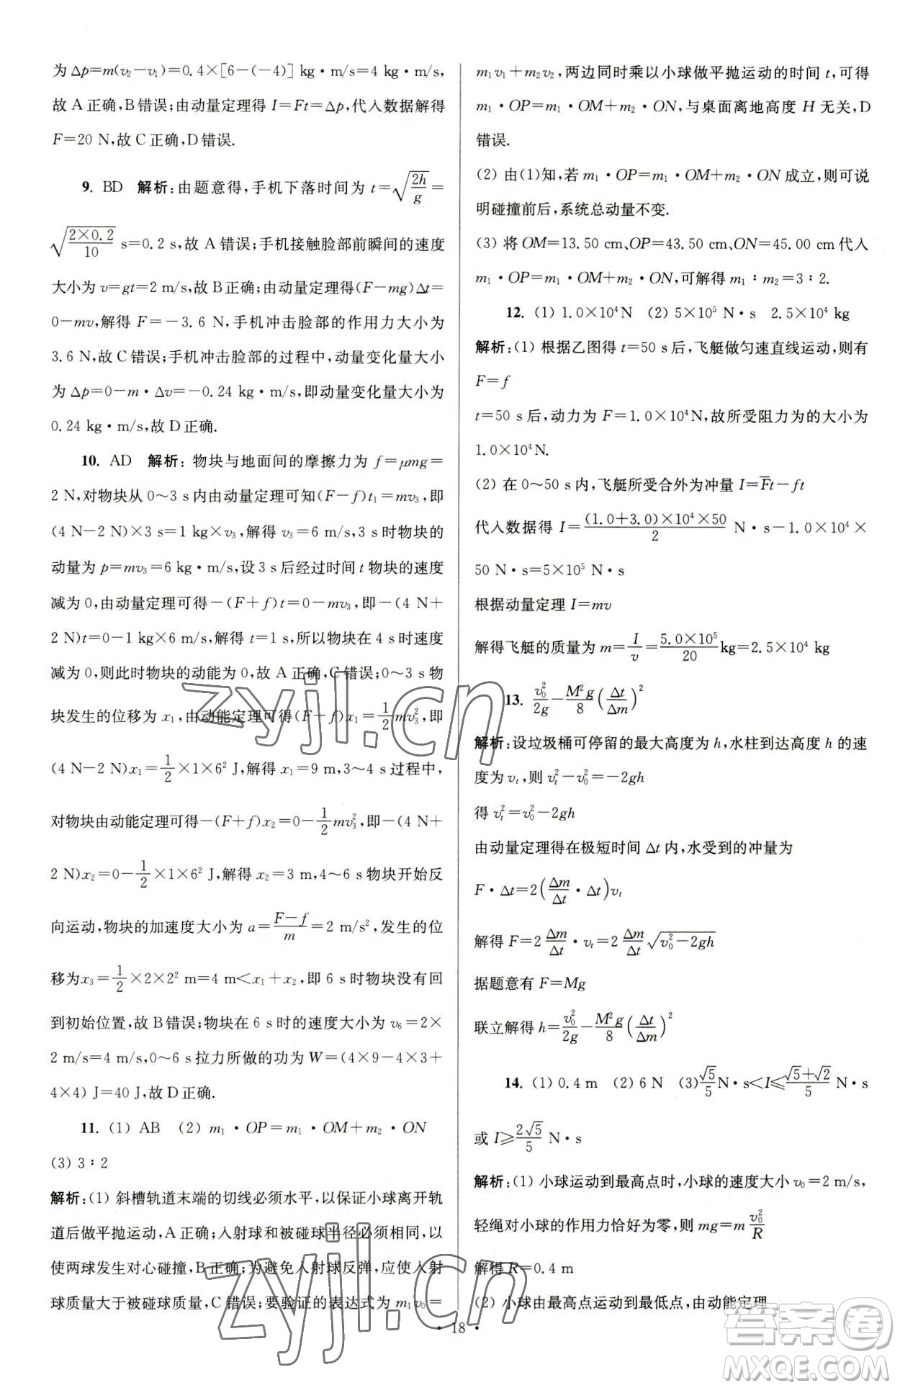 为 Δp=m(v₂−v₁)=0.4×[6−(−4)] kg·m/s=4 kg·m/s,
故 A 正确,B 错误;由动量定理得 I=Ft=Δp,代入数据解得
F=20 N,故 C 正确,D 错误.
9. BD 解析:由题意得,手机下落时间为 t=√(2h/g)=
√(2×0.2/10) s=0.2 s,故 A 错误;手机接触脸部前瞬间的速度
大小为 v=gt=2 m/s,故 B 正确;由动量定理得(F−mg)Δt=
0−mv,解得 F=−3.6 N,手机冲击脸部的作用力大小为
3.6 N,故 C 错误;手机冲击脸部的过程中,动量变化量大小
为 Δp=0−m·Δv=−0.24 kg·m/s,即动量变化量大小为
0.24 kg·m/s,故 D 正确.
10. AD 解析:物块与地面间的摩擦力为 f=μmg=
2 N,对物块从 0～3 s 内由动量定理可知(F−f)t₁=mv₃,即
(4 N−2 N)×3 s=1 kg×v₃,解得 v₃=6 m/s,3 s 时物块的
动量为 p=mv₃=6 kg·m/s,设 3 s 后经过时间 t 物块的速度
减为 0,由动量定理可得−(F+f)t=0−mv₃,即−(4 N+
2 N)t=0−1 kg×6 m/s,解得 t=1 s,所以物块在 4 s 时速度
减为 0,则此时物块的动能为 0,故 A 正确,C 错误;0～3 s 物
块发生的位移为 x₁,由动能定理可得(F−f)x₁=1/2mv₃²,即
(4 N−2 N)x₁=1/2×1×6² J,解得 x₁=9 m,3～4 s 过程中,
对物块由动能定理可得−(F+f)x₂=0−1/2mv₃²,即−(4 N+
2 N)x₂=0−1/2×1×6² J,解得 x₂=3 m,4～6 s 物块开始反
向运动,物块的加速度大小为 a=(F−f)/m=2 m/s²,发生的位
移为x₃=1/2×2×2² m=4 m<x₁+x₂,即 6 s 时物块没有回
到初始位置,故 B 错误;物块在 6 s 时的速度大小为 v₆=2×
2 m/s=4 m/s,0～6 s 拉力所做的功为 W=(4×9−4×3+
4×4) J=40 J,故 D 正确.
11. (1) AB (2) m₁·OP=m₁·OM+m₂·ON
(3) 3∶2
解析:(1) 斜槽轨道末端的切线必须水平,以保证小球离开轨
道后做平抛运动,A 正确;入射球和被碰球半径必须相同,以
使两球发生对心碰撞,B 正确;为避免入射球反弹,应使入射
球质量大于被碰球质量,C 错误;要验证的表达式为 m₁v₀=
m₁v₁+m₂v₂,两边同时乘以小球做平抛运动的时间 t,可得
m₁·OP=m₁·OM+m₂·ON,与桌面离地高度 H 无关,D
错误.
(2) 由(1)知,若 m₁·OP=m₁·OM+m₂·ON 成立,则可说
明碰撞前后,系统总动量不变.
(3) 将 OM=13.50 cm,OP=43.50 cm,ON=45.00 cm 代入
m₁·OP=m₁·OM+m₂·ON,可解得 m₁∶m₂=3∶2.
12. (1) 1.0×10⁴N (2) 5×10⁵ N·s 2.5×10⁴ kg
解析:(1) 根据乙图得 t=50 s 后,飞艇做匀速直线运动,则有
F=f
t=50 s 后,动力为 F=1.0×10⁴N,故所受阻力为的大小为
1.0×10⁴ N.
(2) 在 0～50 s 内,飞艇所受合外为冲量 I=F̄t−ft
代入数据得 I=(1.0+3.0)×10⁴×50/2 N·s−1.0×10⁴×
50 N·s=5×10⁵ N·s
根据动量定理 I=mv
解得飞艇的质量为 m=I/v=5.0×10⁵/20 kg=2.5×10⁴ kg
13. v₀²/2g−M²g/8(Δt/Δm)²
解析:设垃圾桶可停留的最大高度为 h,水柱到达高度 h 的速
度为 vₜ,则 vₜ²−v₀²=−2gh
得 vₜ²=v₀²−2gh
由动量定理得在极短时间 Δt 内,水受到的冲量为
F·Δt=2(Δm/Δt·Δt)vₜ
解得 F=2Δm/Δt·vₜ=2Δm/Δt√(v₀²−2gh)
据题意有 F=Mg
联立解得 h=v₀²/2g−M²g/8(Δt/Δm)²
14. (1) 0.4 m (2) 6 N (3) √5/5 N·s<I⩽(√5+√2)/5 N·s
或 I⩾2√5/5 N·s
解析:(1) 小球运动到最高点时,小球的速度大小 v₀=2 m/s,
轻绳对小球的作用力恰好为零,则 mg=m v₀²/R
解得 R=0.4 m
(2) 小球由最高点运动到最低点,由动能定理
·18·
zyjl.cn
zyjl.cn
答案圈
MXQE.COM